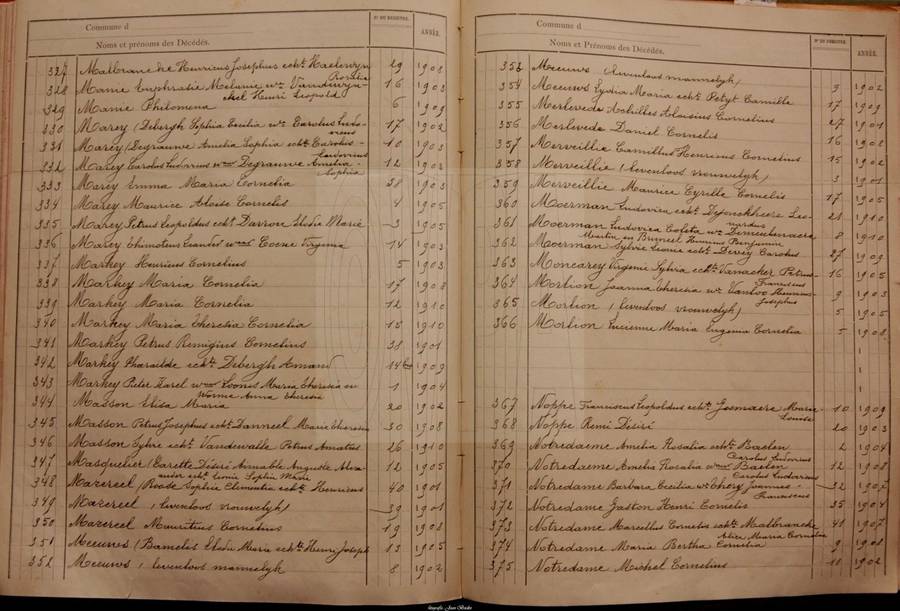 Commune d
Noms et prénoms des Décédés.
Nº DU REGISTRE.
ANNÉE.
327 Malbrancke Henricus Josephus echt. Haelewyn 29 1908
Rosalia
328 Manie Euphrasie Melanie we 16 1903
Abel Henri Leopold
329 Manie Philomena 6 1909
330 Marey (Debergh Sophia Cecilia we Carolus Ludo- 17 1902
vicus
331 Marey (Degrauwe Amelia Sophia echt. Carolus- 10 1903
Ludovicus
332 Marey Carolus Ludovicus wwr Degrauwe Amelia- 12 1908
Sophia
333 Marey Emma Maria Cornelia 38 1903
334 Marey Maurice Aloise Cornelis 4 1905
335 Marey Petrus Leopoldus echt. Elodie Marie 3 1905
336 Marey Thimoteus Leander wwr Cosne Virginia 14 1903
337 Markey Henricus Cornelius 5 1903
338 Markey Maria Cornelia 17 1908
339 Markey Maria Cornelia 12 1910
340 Markey Maria Theresia Cornelia 15 1910
341 Markey Petrus Remigius Cornelius 38 1901
342 Markey Pharailde echt. Debergh Amand 1909
343 Markey Peter Karel wwr Loones Maria Theresia en 1 1904
Worme Anna Theresia
344 Masson Elisa Maria 20 1902
345 Masson Petrus Josephus echt. Danneel Marie Theresia 30 1908
346 Masson Sylvie echt. Vandewalle Petrus Amatus 26 1910
347 Masquelier (Carette Désiré Aimable Auguste Alex- 12 1905
ander echt. Leonie Sophie Marie
348 Mazereel (Roose Sophie Clementia echt. Henricus 40 1901
349 Mazereel (levenloos vrouwelyk) 39 1901
350 Mazereel Mauritius Cornelius 19 1908
351 Meeuws (Bamelis Elodie Maria echt. Henri Joseph 13 1905
352 Meeuws, levenloos mannelyk 8 1902
Commune d
Noms et Prénoms des Décédés.
Nº DU REGISTRE.
ANNÉE.
353 Meeuws (levenloos mannelyk) 9 1902
354 Meeuws Lydia Maria echt. Petyt Camille 17 1909
355 Merlevede Achilles Aloisius Cornelius 27 1901
356 Merlevede Daniel Cornelis 16 1908
357 Merveillie Camillus Henricus Cornelius 15 1902
358 Merveillie (levenloos vrouwelyk) 3 1901
359 Merveillie Maurice Cyrille Cornelis 17 1905
360 Moerman Ludovica echt. Dejonckheere Leo- 21 1910
nardus
361 Moerman Ludovica Coleta we 8 1910
Martin en Bruneel Henricus Benjamin
362 Moerman Sylvie Leonie echt. Devey Carolus 27 1909
363 Moncarey Virginie Sylvia echt. Vanacker Petrus- 16 1905
Franciscus
364 Morlion Joanna Theresia we Vanloo Henricus 9 1903
Josephus
365 Morlion (levenloos vrouwelyk) 5 1905
366 Morlion Lucienne Maria Eugenia Cornelia 5 1908
367 Noppe Franciscus Leopoldus echt. Gesmaere Marie 10 1909
Louise
368 Noppe Remi Désiré 20 1903
369 Notredaeme Amelia Rosalia echt. Baelen 2 1904
Carolus Ludovicus
370 Notredaeme Amelia Rosalia wwe Baelen 12 1908
Carolus Ludovicus
371 Notredame Barbara Cecilia we Thery Joannes- 32 1907
Franciscus
372 Notredame Gaston Henri Cornelis 35 1904
373 Notredame Marcellus Cornelis echt. Malbrancke 41 1907
Alice Maria Cornelia
374 Notredame Maria Bertha Cornelia 9 1908
375 Notredame Michel Cornelius 11 1902